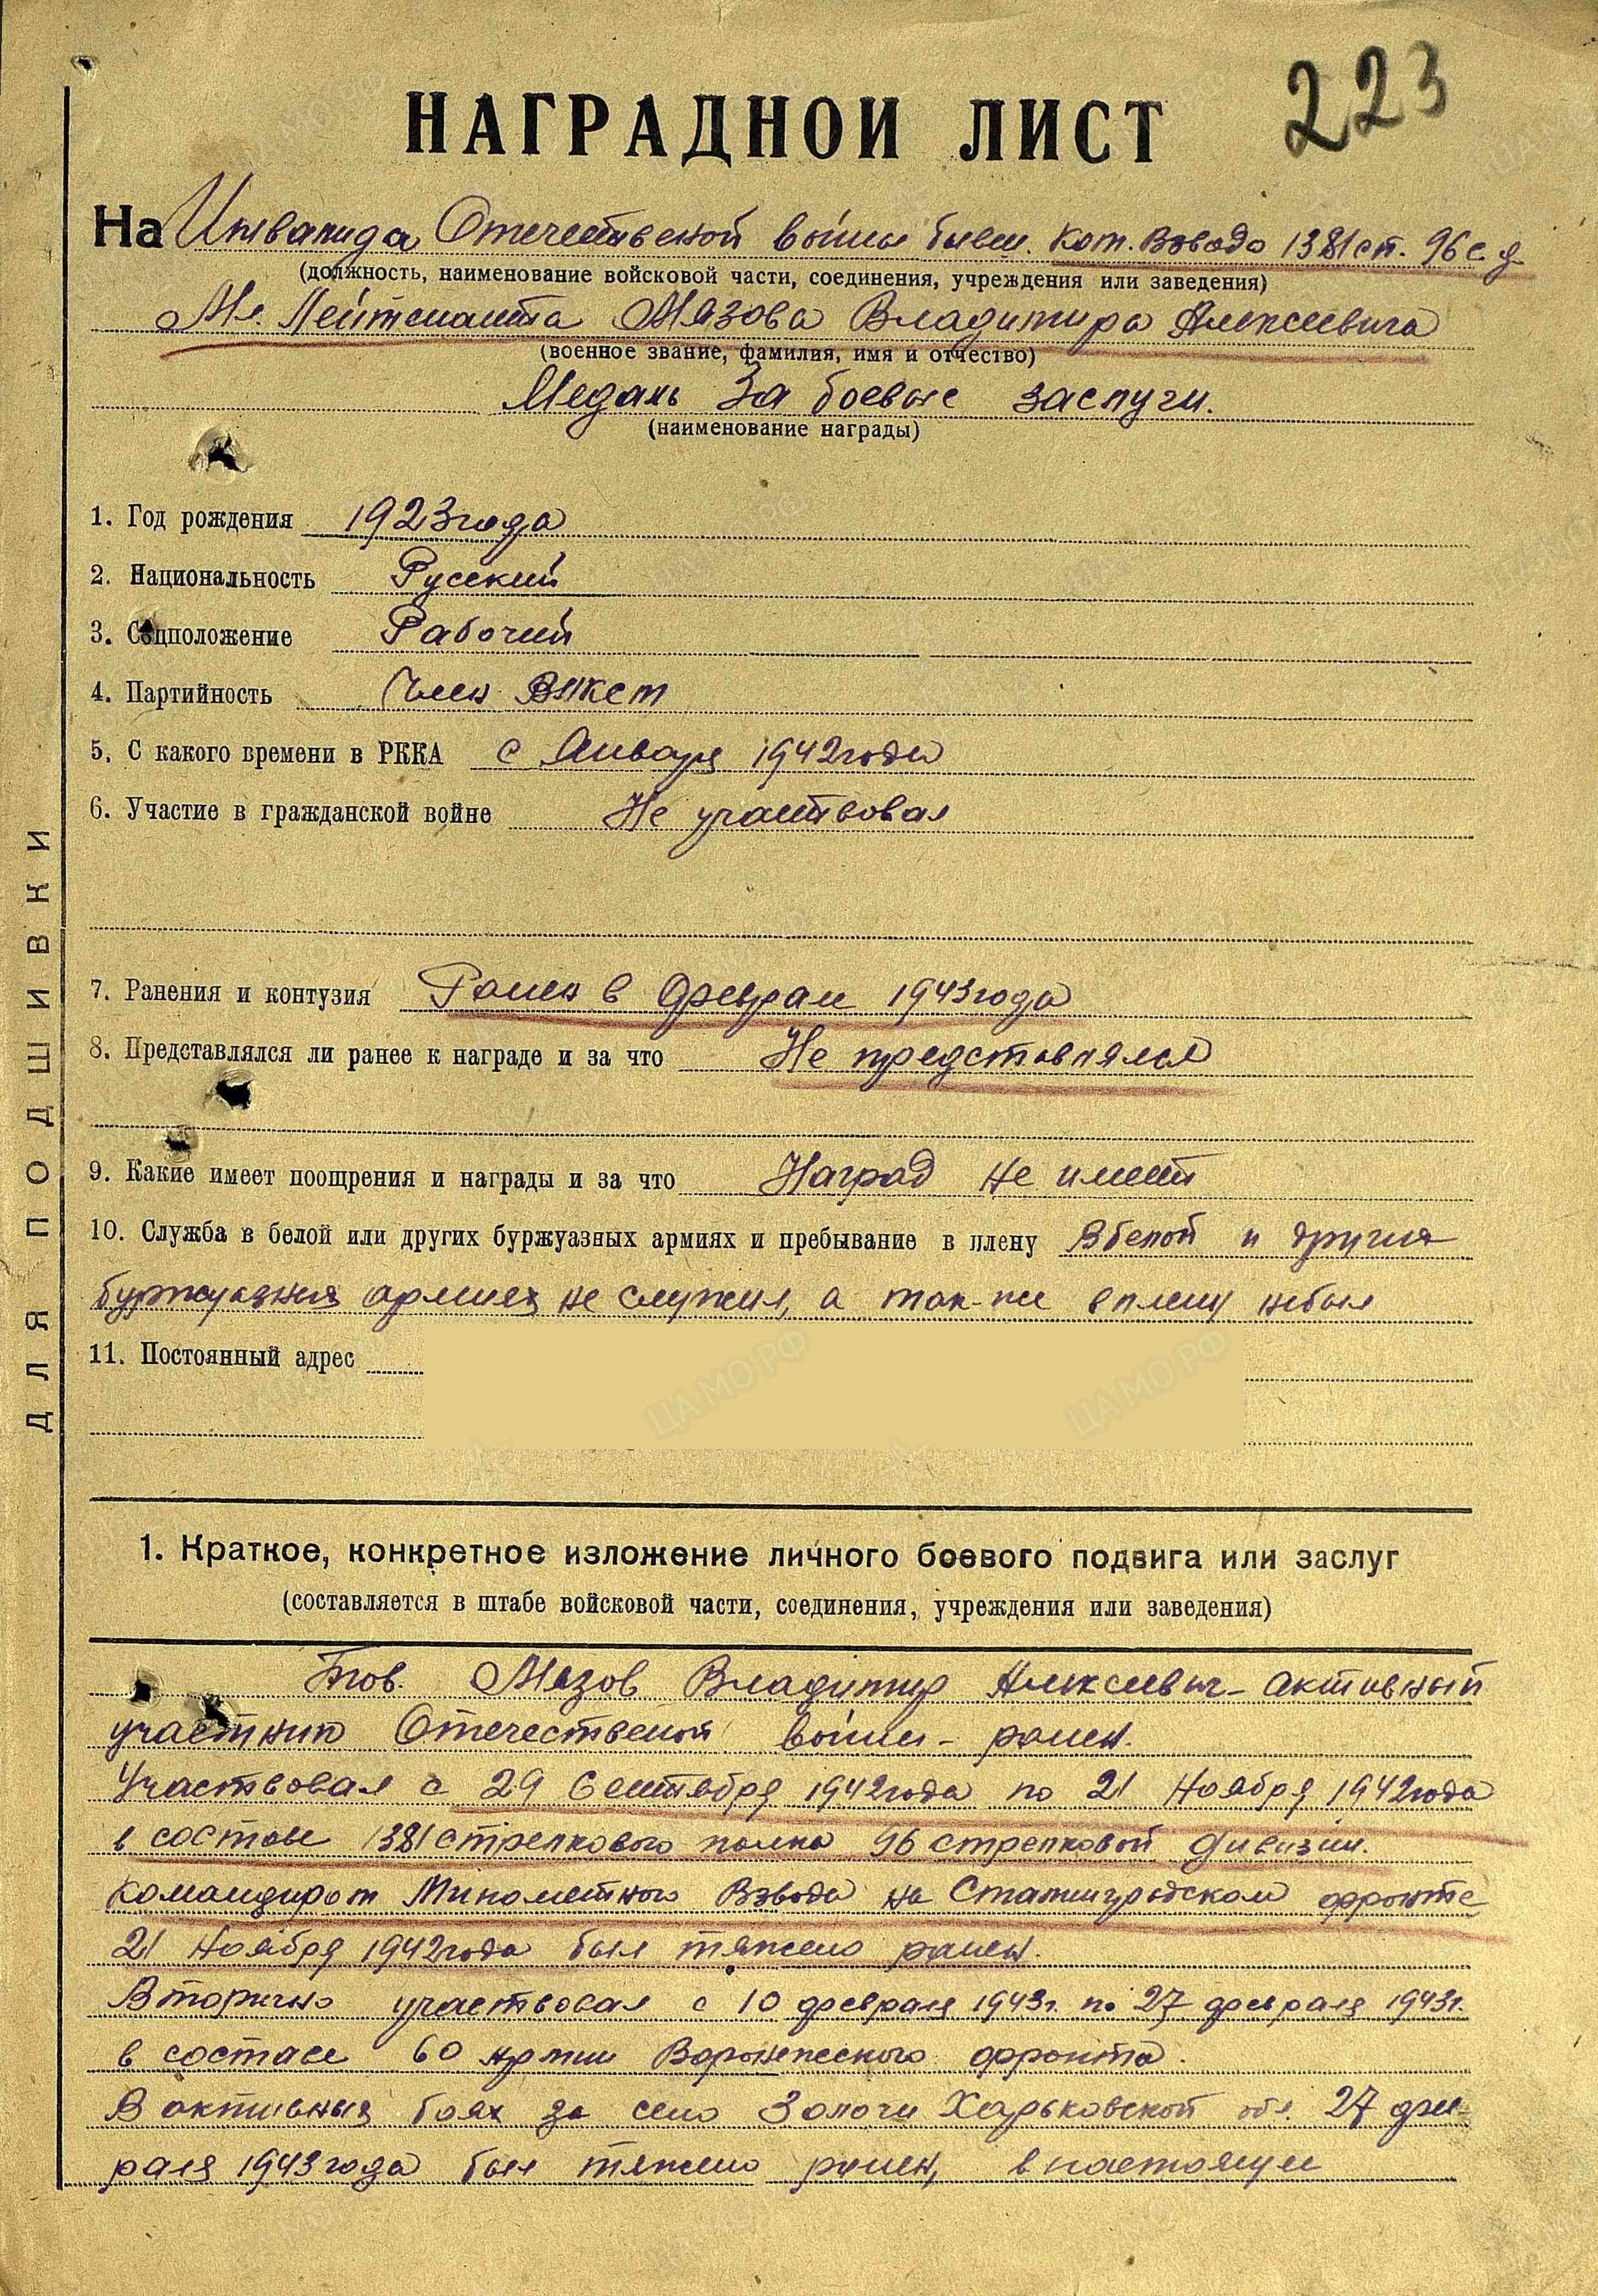 223
НАГРАДНОЙ ЛИСТ
На Инвалида Отечественой войны бывш. ком. Взвода 1381 сп. 96 с.д
(должность, наименование войсковой части, соединения, учреждения или заведения)
Мл. Лейтенанта Мязова Владимира Алексеевича
(военное звание, фамилия, имя и отчество)
Медаль За боевые заслуги.
(наименование награды)
1. Год рождения 1923 года
2. Национальность Русский
3. Соцположение Рабочий
4. Партийность Член ВЛКСМ
5. С какого времени в РККА с Января 1942 года
6. Участие в гражданской войне Не участвовал
7. Ранения и контузия Ранен в феврале 1943 года
8. Представлялся ли ранее к награде и за что Не представлялся
9. Какие имеет поощрения и награды и за что Наград не имеет
10. Служба в белой или других буржуазных армиях и пребывание в плену В белой и других
буржуазных армиях не служил, а так-же в плену небыл
11. Постоянный адрес
1. Краткое, конкретное изложение личного боевого подвига или заслуг
(составляется в штабе войсковой части, соединения, учреждения или заведения)
Тов. Мязов Владимир Алексеевич - активный
участник Отечественой войны - ранен.
Участвовал с 29 Сентября 1942 года по 21 Ноября 1942 года
в составе 1381 стрелкового полка 96 стрелковой дивизии.
командиром Минометного Взвода на Сталинградском фронте
21 Ноября 1942 года был тяжело ранен.
Вторично участвовал с 10 февраля 1943 г. по 27 февраля 1943 г.
в составе 60 армии Воронежского фронта.
В активных боях за село Золочи Харьковской обл. 27 фев-
раля 1943 года был тяжело ранен, в настоящее
ДЛЯ ПОДШИВКИ
ЦАМО.РФ